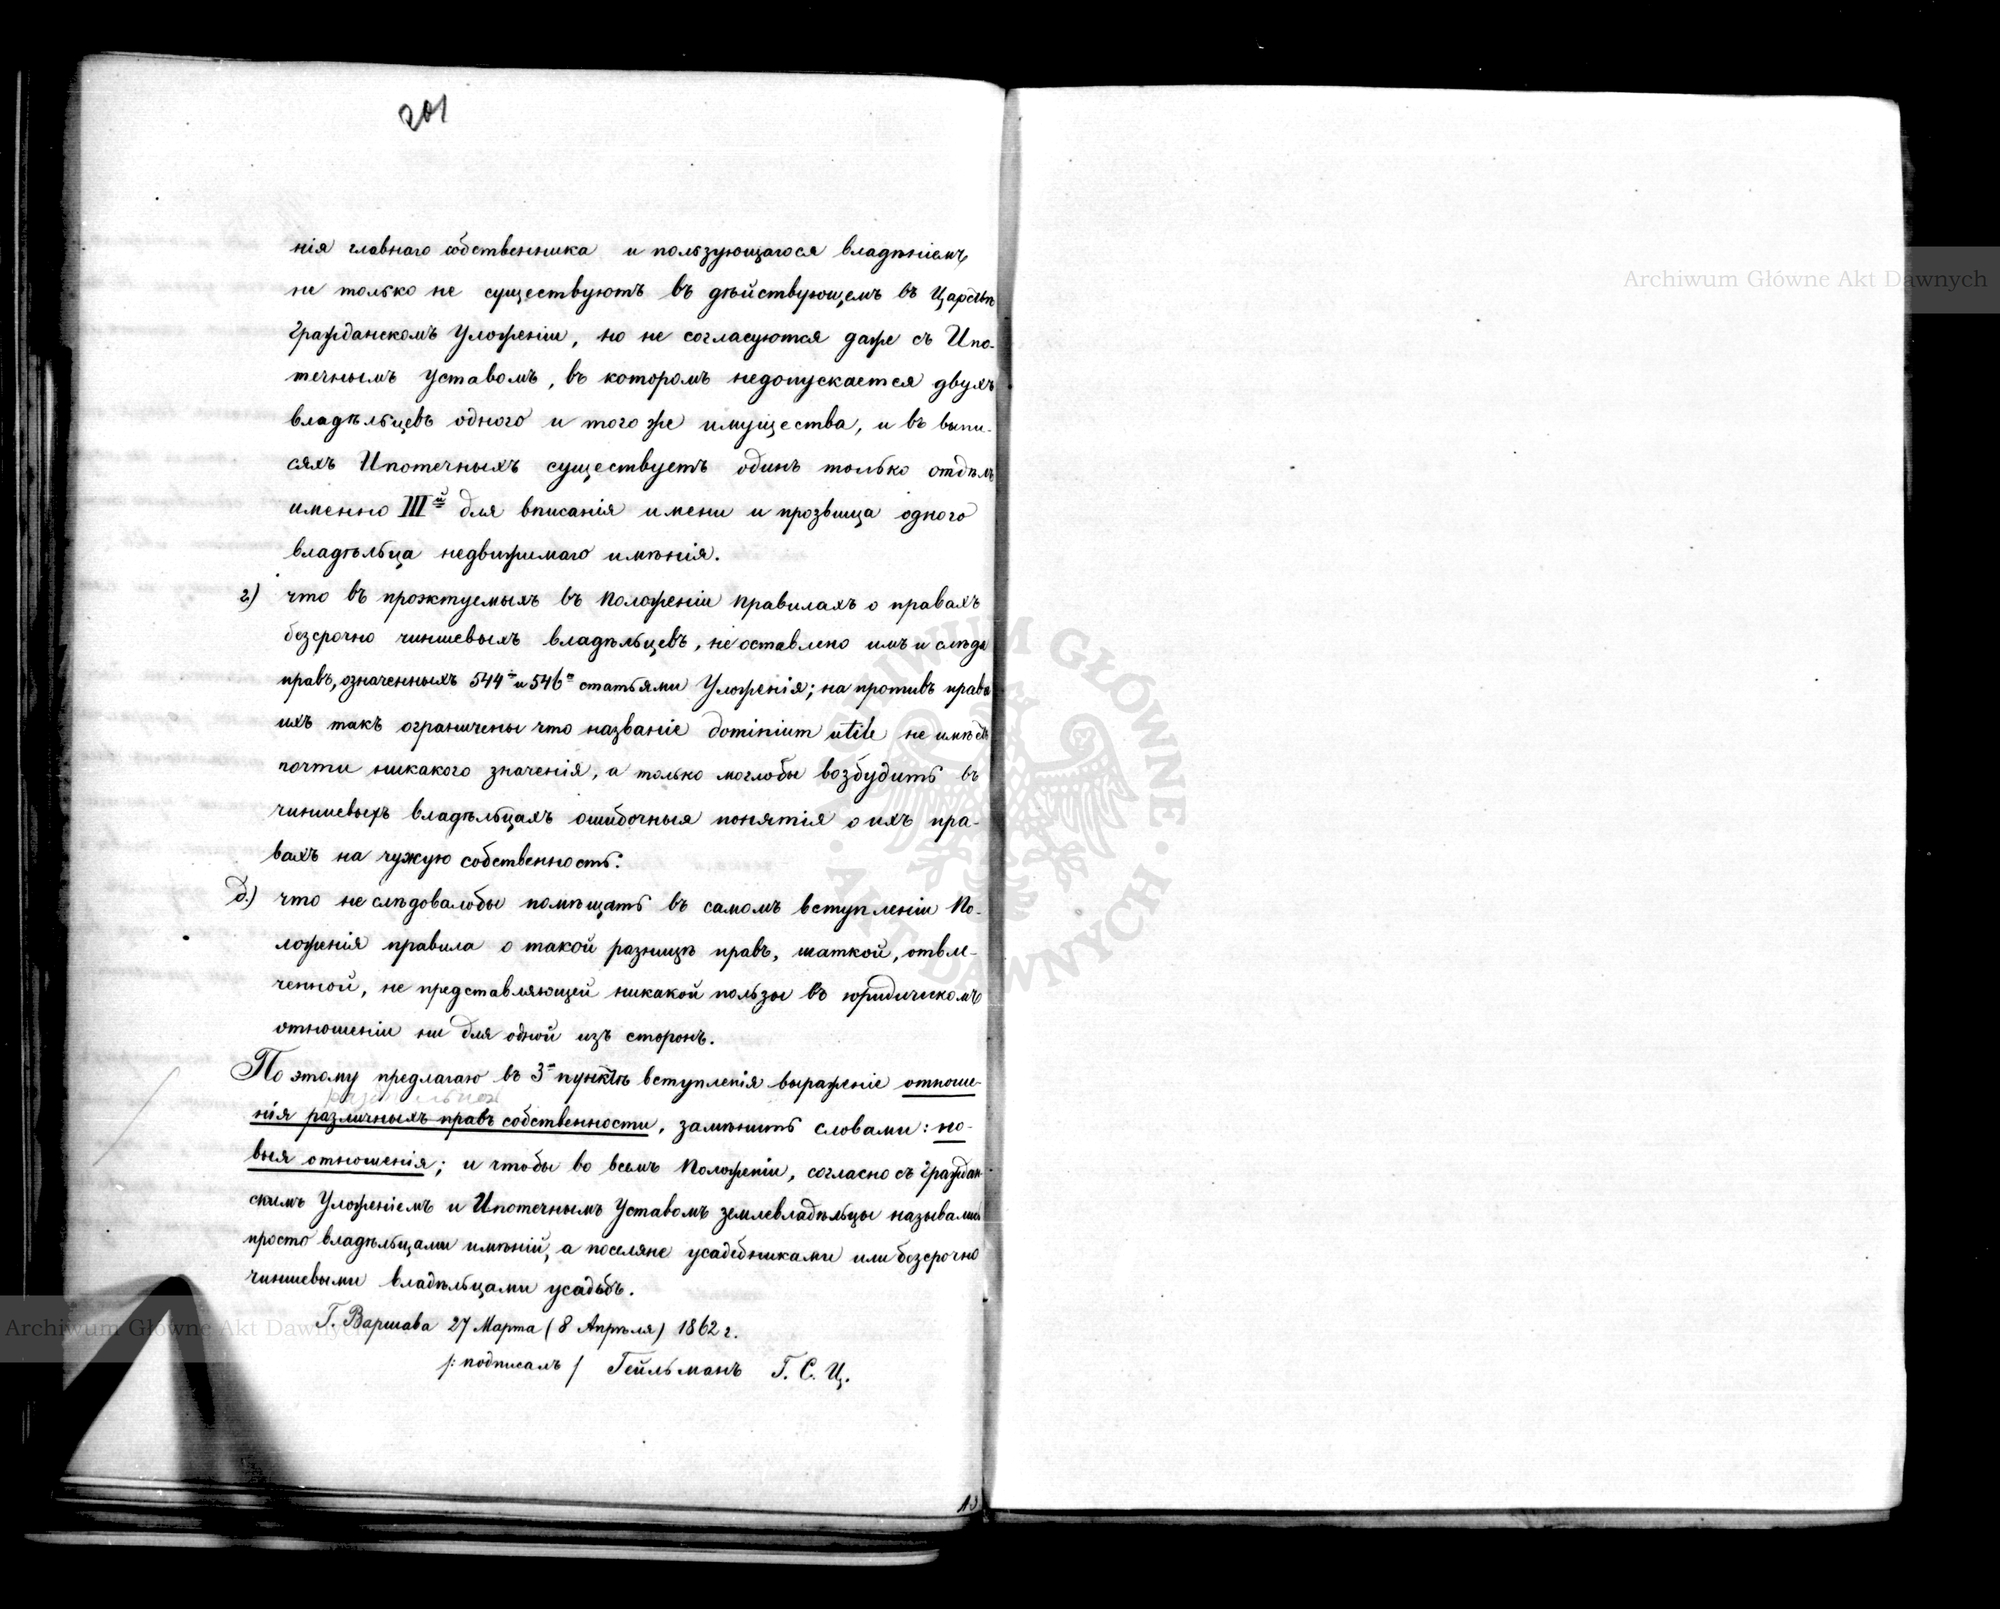 201
нія главнаго собственника и пользующагося владѣніемъ
не только не существуютъ въ дѣйствующемъ въ Царствѣ
Гражданскомъ Уложеніи, но не согласуются даже съ Ипо-
течнымъ Уставомъ, въ которомъ недопускается двухъ
владѣльцевъ одного и того же имущества, и въ выпи-
сяхъ Ипотечныхъ существуетъ одинъ только отдѣлъ
именно IIIй для вписанія имени и прозвища одного
владѣльца недвижимаго имѣнія.
г) что въ проэктуемыхъ въ Положеніи правилахъ о правахъ
безсрочно чиншевыхъ владѣльцевъ, не оставлено имъ и слѣда
правъ, означенныхъ 544 и 546 статьями Уложенія; на противъ права
ихъ такъ ограничены что названіе dominium utile не имѣетъ
почти никакого значенія, а только моглобы возбудить въ
чиншевыхъ владѣльцахъ ошибочныя понятія о ихъ пра-
вахъ на чужую собственность:
д.) что не слѣдовалобы помѣщать въ самомъ вступленіи По-
ложенія правила о такой разницѣ правъ, шаткой, отвле-
ченной, не представляющей никакой пользы въ юридическомъ
отношеніи ни для одной изъ сторонъ.
По этому предлагаю въ 3 пунктѣ вступленія выраженіе отноше-
нія различныхъ правъ собственности, замѣнить словами: но-
выя отношенія; и чтобы во всемъ Положеніи, согласно съ Граждан-
скимъ Уложеніемъ и Ипотечнымъ Уставомъ землевладѣльцы назывались
просто владѣльцами имѣній, а поселяне усадебниками или безсрочно
чиншевыми владѣльцами усадьбъ.
Г. Варшава 27 Марта (8 Апрѣля) 1862 г.
/: подписалъ / Гейльманъ Г. С. Ц.
Archiwum Główne Akt Dawnych
Archiwum Główne Akt Dawnych
ARCHIWUM GŁÓWNE · AKT DAWNYCH ·